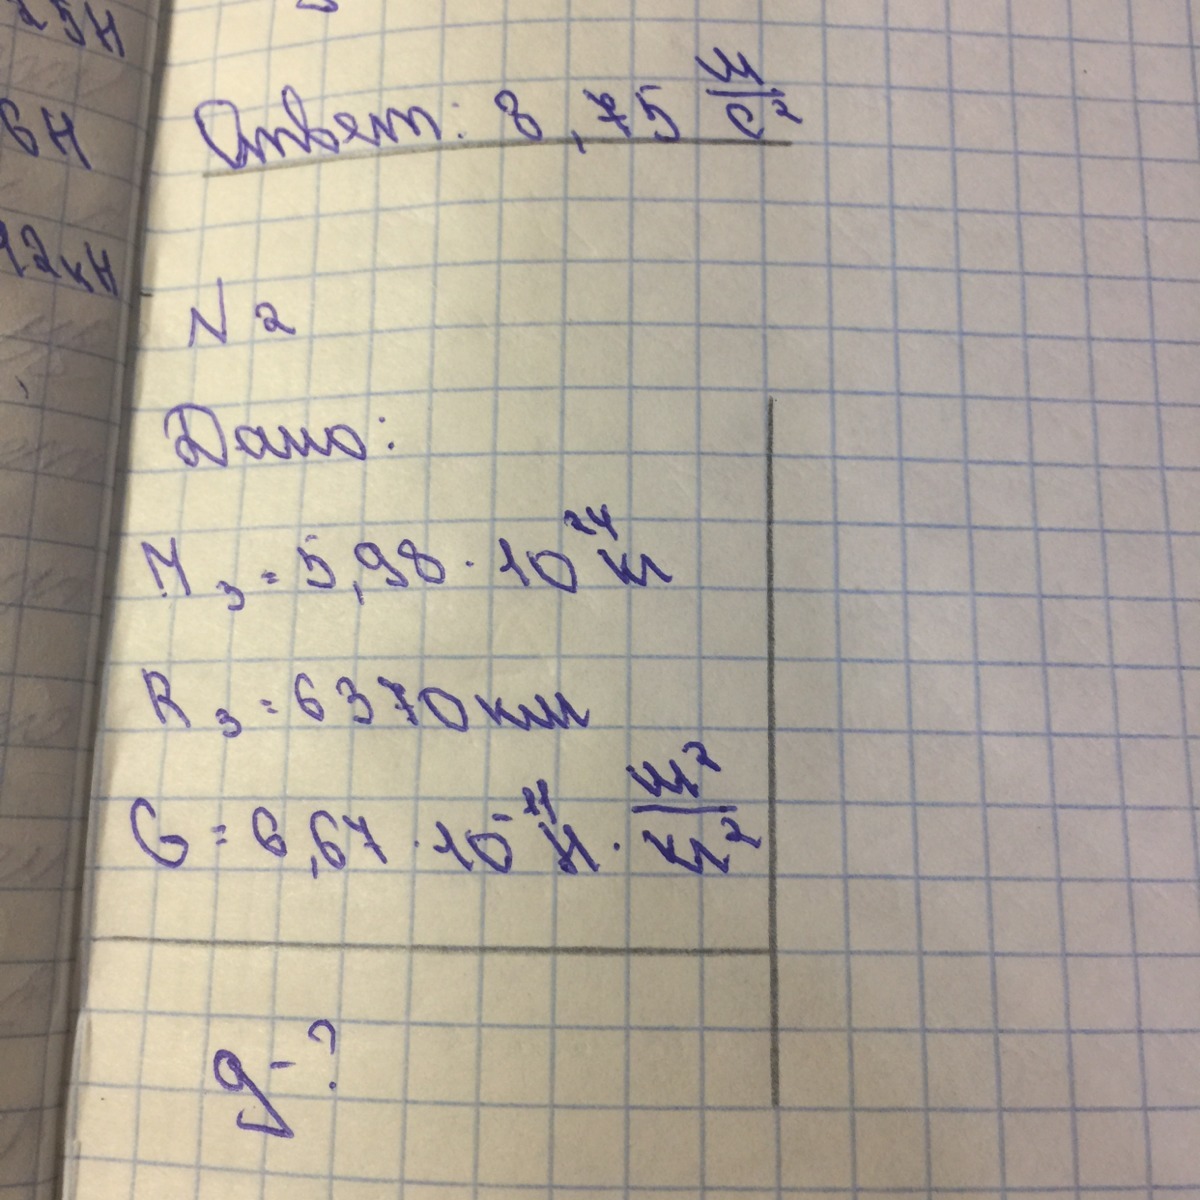 25Н
6Н
92кН
Ответ: 8,75 м/с²
N 2
Дано:
M₃ = 5,98 · 10²⁴ кг
R₃ = 6370 км
G = 6,67 · 10⁻¹¹ Н · м²/кг²
g - ?